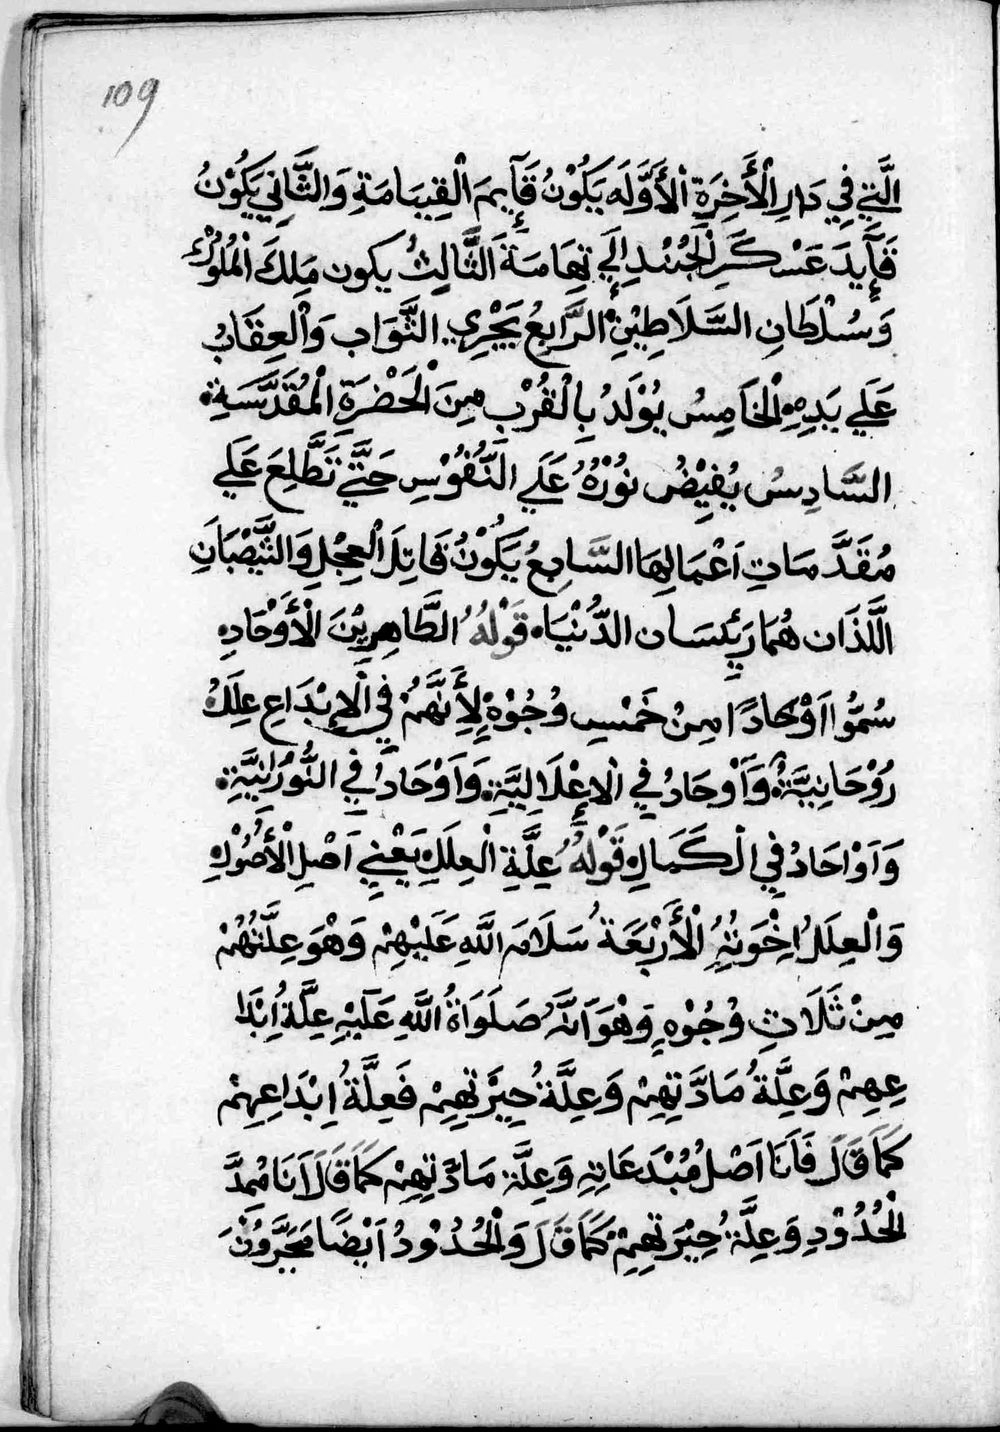 109
الَّتِي فِي دَارِ الْأَخِرَةِ الْأَوَّلَه يَكُوْنُ قَآئِمَ الْقِيَامَةِ وَالثَّانِي يَكُوْنُ
قَآئِدَ عَسْكَرِ الْجُنْدِ إِلَي تِهَامَةَ الثَّالِثُ يكون مَلِكَ الْمُلُوْكِ
وَسُلْطَانِ السَّلَاطِيْنِ الرَّابِعُ يَجْرِي الثَّوَاب وَالْعِقَابُ
عَلَي يَدِهِ الْخَامِسُ يُوْلَدُ بِالْقُرْبِ مِنَ الْحَضْرَةِ الْمُقَدَّسَةِ
السَّادِسُ يُفِيْضُ نُوْرُهُ عَلَي النُّفُوْسِ حَتَّي تَطَّلِعَ عَلَي
مُقَدَّمَاتِ اَعْمَالِهَا السَّابِعُ يَكُوْنُ قَاتِلَ الْعِجْلِ وَالثَّيْصَبَانِ
اللَّذَان هُمَا رَئِيسَان الدُّنْيَا قَوْلُهُ الطَّاهِرِيْنَ الْأَوْحَادِ
سُمُّوا اَوْحَادًا مِنْ خَمْسِ وُجُوْهٍ لِأَنَّهُمْ فِي الْإِبْدَاعِ عِلَلُ
رُوْحَانِيَّةٌ وَأَوْحَادُ فِي الْإِعْلَالِيَّةِ وَاَوْحَادُ فِي النُّوْرَانِيَّةِ
وَاَوْاحَادُ فِي الْكَمَالِ قَوْلُهُ عِلَّةِ الْعِلَلِ يَعْنِي اَصْلِ الْأُصُوْلِ
وَالْعِلَلُ اِخْوَتُهُ الْأَرْبَعَةُ سَلَامُ اللَّهِ عَلَيْهِمْ وَهْوَ عِلَّتُهُمْ
مِنْ ثَلَاثِ وُجُوْهٍ وَهْوَ اَنَّهُ صَلَوَاةُ اللَّهِ عَلَيْهِ عِلَّةُ اِبْدَا
عِهِمْ وَعِلَّةُ مَادَّتِهِمْ وَعِلَّةُ حِيْرَتِهِمْ فَعِلَّةُ اِبْدَاعِهِمْ
كَمَا قَالَ فَاَنَا اَصْلُ مُبْدَعَاتِهِ وَعِلَّة مَادَّتِهِمْ كَمَا قَالَ اَنَا مُمِدُّ
الْحُدُوْدِ وَعِلَّةُ حِيْرَتِهِمْ كَمَا قَالَ وَالْحُدُوْدُ اَيْضًا مَجَرُّوْنَ